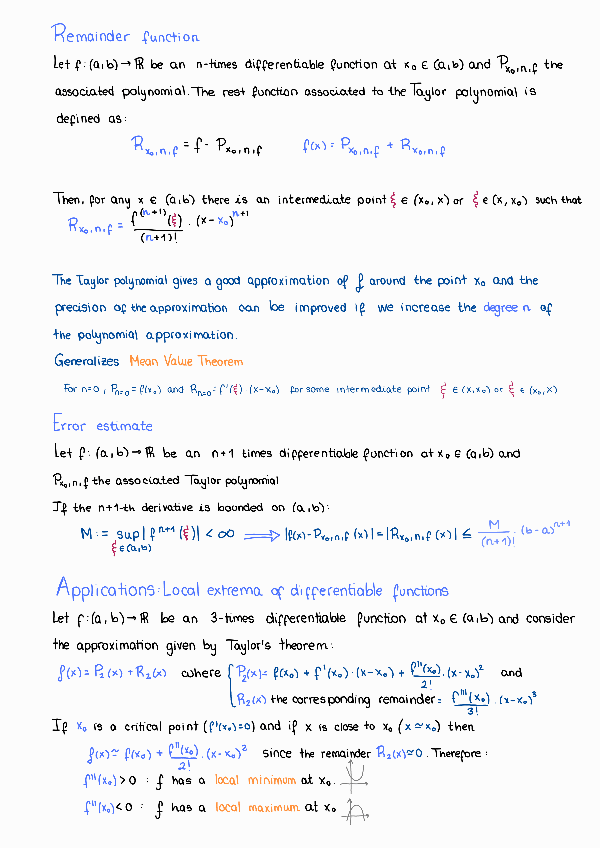 Remainder function
Let f:(a,b)→ℝ be an n-times differentiable function at x₀ ∈ (a,b) and P_{x₀,n,f} the
associated polynomial. The rest function associated to the Taylor polynomial is
defined as:
R_{x₀,n,f} = f - P_{x₀,n,f} f(x) = P_{x₀,n,f} + R_{x₀,n,f}
Then, for any x ∈ (a,b) there is an intermediate point ξ ∈ (x₀,x) or ξ ∈ (x,x₀) such that
R_{x₀,n,f} = f^{(n+1)}(ξ)/(n+1)! · (x-x₀)^{n+1}
The Taylor polynomial gives a good approximation of f around the point x₀ and the
precision of the approximation can be improved if we increase the degree n of
the polynomial approximation.
Generalizes Mean Value Theorem
For n=0, P_{n=0} = f(x₀) and R_{n=0} = f'(ξ) (x-x₀) for some intermediate point ξ ∈ (x,x₀) or ξ ∈ (x₀,x)
Error estimate
Let f:(a,b)→ℝ be an n+1 times differentiable function at x₀ ∈ (a,b) and
P_{x₀,n,f} the associated Taylor polynomial
If the n+1-th derivative is bounded on (a,b):
M := sup_{ξ∈(a,b)} |f^{n+1}(ξ)| < ∞ ⟹ |f(x)-P_{x₀,n,f}(x)| = |R_{x₀,n,f}(x)| ≤ M/(n+1)! · (b-a)^{n+1}
Applications: Local extrema of differentiable functions
Let f:(a,b)→ℝ be an 3-times differentiable function at x₀ ∈ (a,b) and consider
the approximation given by Taylor's theorem:
f(x) = P₂(x) + R₂(x) where { P₂(x) = f(x₀) + f'(x₀)·(x-x₀) + f''(x₀)/2! · (x-x₀)² and
R₂(x) the corresponding remainder = f'''(x₀)/3! · (x-x₀)³
If x₀ is a critical point (f'(x₀)=0) and if x is close to x₀ (x ≃ x₀) then
f(x) ≃ f(x₀) + f''(x₀)/2! · (x-x₀)² since the remainder R₂(x) ≃ 0. Therefore:
f''(x₀) > 0 : f has a local minimum at x₀.
f''(x₀) < 0 : f has a local maximum at x₀